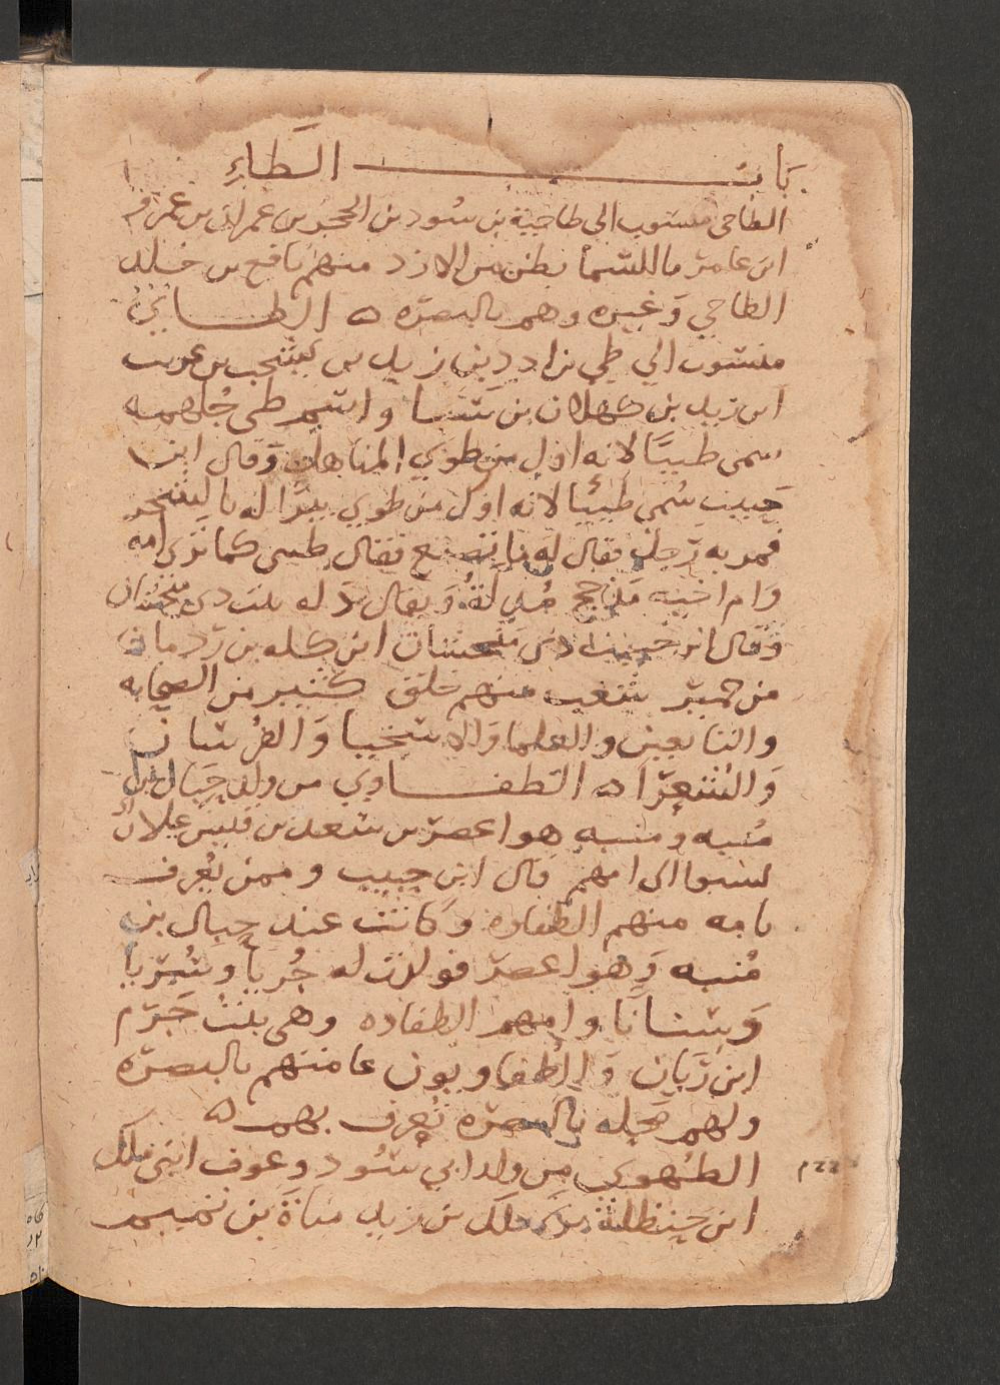 باب الطاءِ
الطاحي منسوب الى طاحية بن سُود بن الحجر بن عمران بن عمرو
ابن عامر ما السما بطن من الازد منهم نافع بن خلد
الطاحي وَغيره وهم بالبصره ه الطــايُ
منسوب الي طي بن ادد بن زيد بن يشجب بن عريب
ابن زيد بن كهلان بن سَبا واسم طى جُلهمه
سمى طييًا لانه اول من طوي المناهل وَقال ابن
حبيب سُمى طييًا لانه اول من طوي بيرًا له بالشجر
فمر به رَجل فقال له ما تصنع فقال طى كما ترى امه
وَام اخيه مذحج مُدِلّةُ وَيقال دَله بنت دى منجشان
وَقال ابن حبيب دى منجشان ابن كله بن رَدمان
من حمير شعب منهم خلق كثير من الصحابه
والتابعين والعلما وَالاسخيا وَالفُرسان
وَالشعرَا ه الطفــاوي من ولد حِبال بن
مُنبه وَمنبه هو اعصر بن سعد بن قيس عيلان
نسبوا الى امهم قال ابن حبيب وممن يُعرف
بامه منهم الطفاوه وَكانت عند حبال بن
مُنبه وَهو اعصر فولدت له جُريا وسُريا
وَسنانًا وامهم الطفاوه وهى بنت جَرم
ابن رَبان وَالطفاويون عامتهم بالبصره
ولهم محله بالبصره تُعرف بهم ه
الطهوي من ولد ابي سُود وعوف ابنى ملك
ابن حنظلة بن ملك بن زيد مناةَ بن تميم